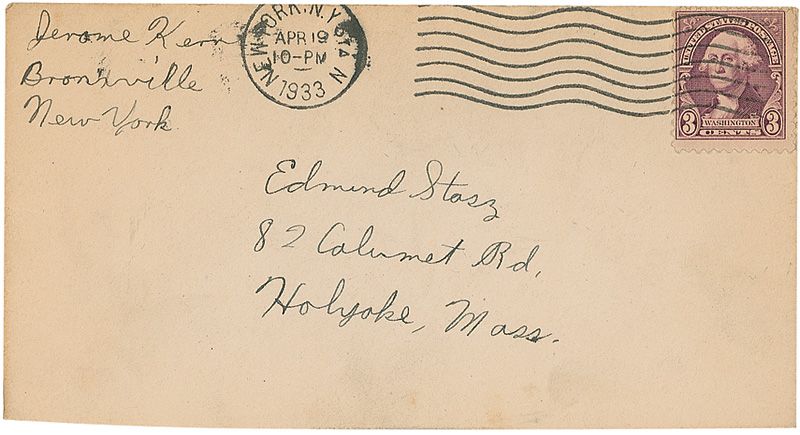 Jerome Kern
Bronxville
New York
NEW YORK, N.Y. STA N
APR 19
10-PM
1933
UNITED STATES POSTAGE
3 WASHINGTON 3
CENTS
Edmund Stasz
82 Calumet Rd,
Holyoke, Mass.